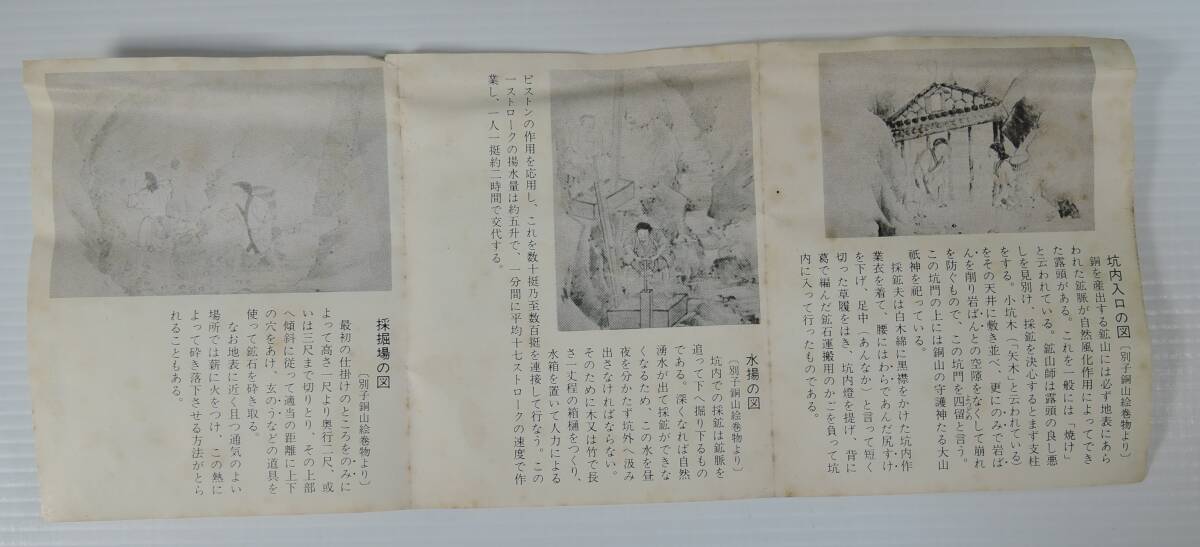 坑内入口の図
〔別子銅山絵巻物より〕
銅を産出する鉱山には必ず地表にあら
われた鉱脈が自然風化作用によってでき
た露頭がある。これを一般には「焼け」
と云われている。鉱山師は露頭の良し悪
しを見別け、採鉱を決心するとまず支柱
をする。小坑木（「矢木」と云われている）
をその天井に敷き並べ、更にのみで岩ば
んを削り岩ばんとの空隙をなくして崩れ
を防ぐもので、この坑門を四留と言う。
この坑門の上には銅山の守護神たる大山
祇神を祀っている
採鉱夫は白木綿に黒襟をかけた坑内作
業衣を着て、腰にはわらであんだ尻すけ
を下げ、足中（あんなか）と言って短く
切った草履をはき、坑内燈を提げ、背に
葛で編んだ鉱石運搬用のかごを負って坑
内に入って行ったものである。
水揚の図
〔別子銅山絵巻物より〕
坑内での採鉱は鉱脈を
追って下へ掘り下るもの
である。深くなれば自然
湧水が出て採鉱ができな
くなるため、この水を昼
夜を分かたず坑外へ汲み
出さなければならない。
そのために木又は竹で長
さ一丈程の箱樋をつくり、
水箱を置いて人力による
ピストンの作用を応用し、これを数十挺乃至数百挺を連接して行なう。この
一ストロークの揚水量は約五升で、一分間に平均十七ストロークの速度で作
業し、一人一挺約二時間で交代する。
採掘場の図
〔別子銅山絵巻物より〕
最初の仕掛けのところをのみに
よって高さ二尺より奥行二尺、或
いは三尺まで切りとり、その上部
へ傾斜に従って適当の距離に上下
の穴をあけ、玄のうなどの道具を
使って鉱石を砕き取る。
なお地表に近く且つ通気のよい
場所では薪に火をつけ、この熱に
よって砕き落下させる方法がとら
れることもある。